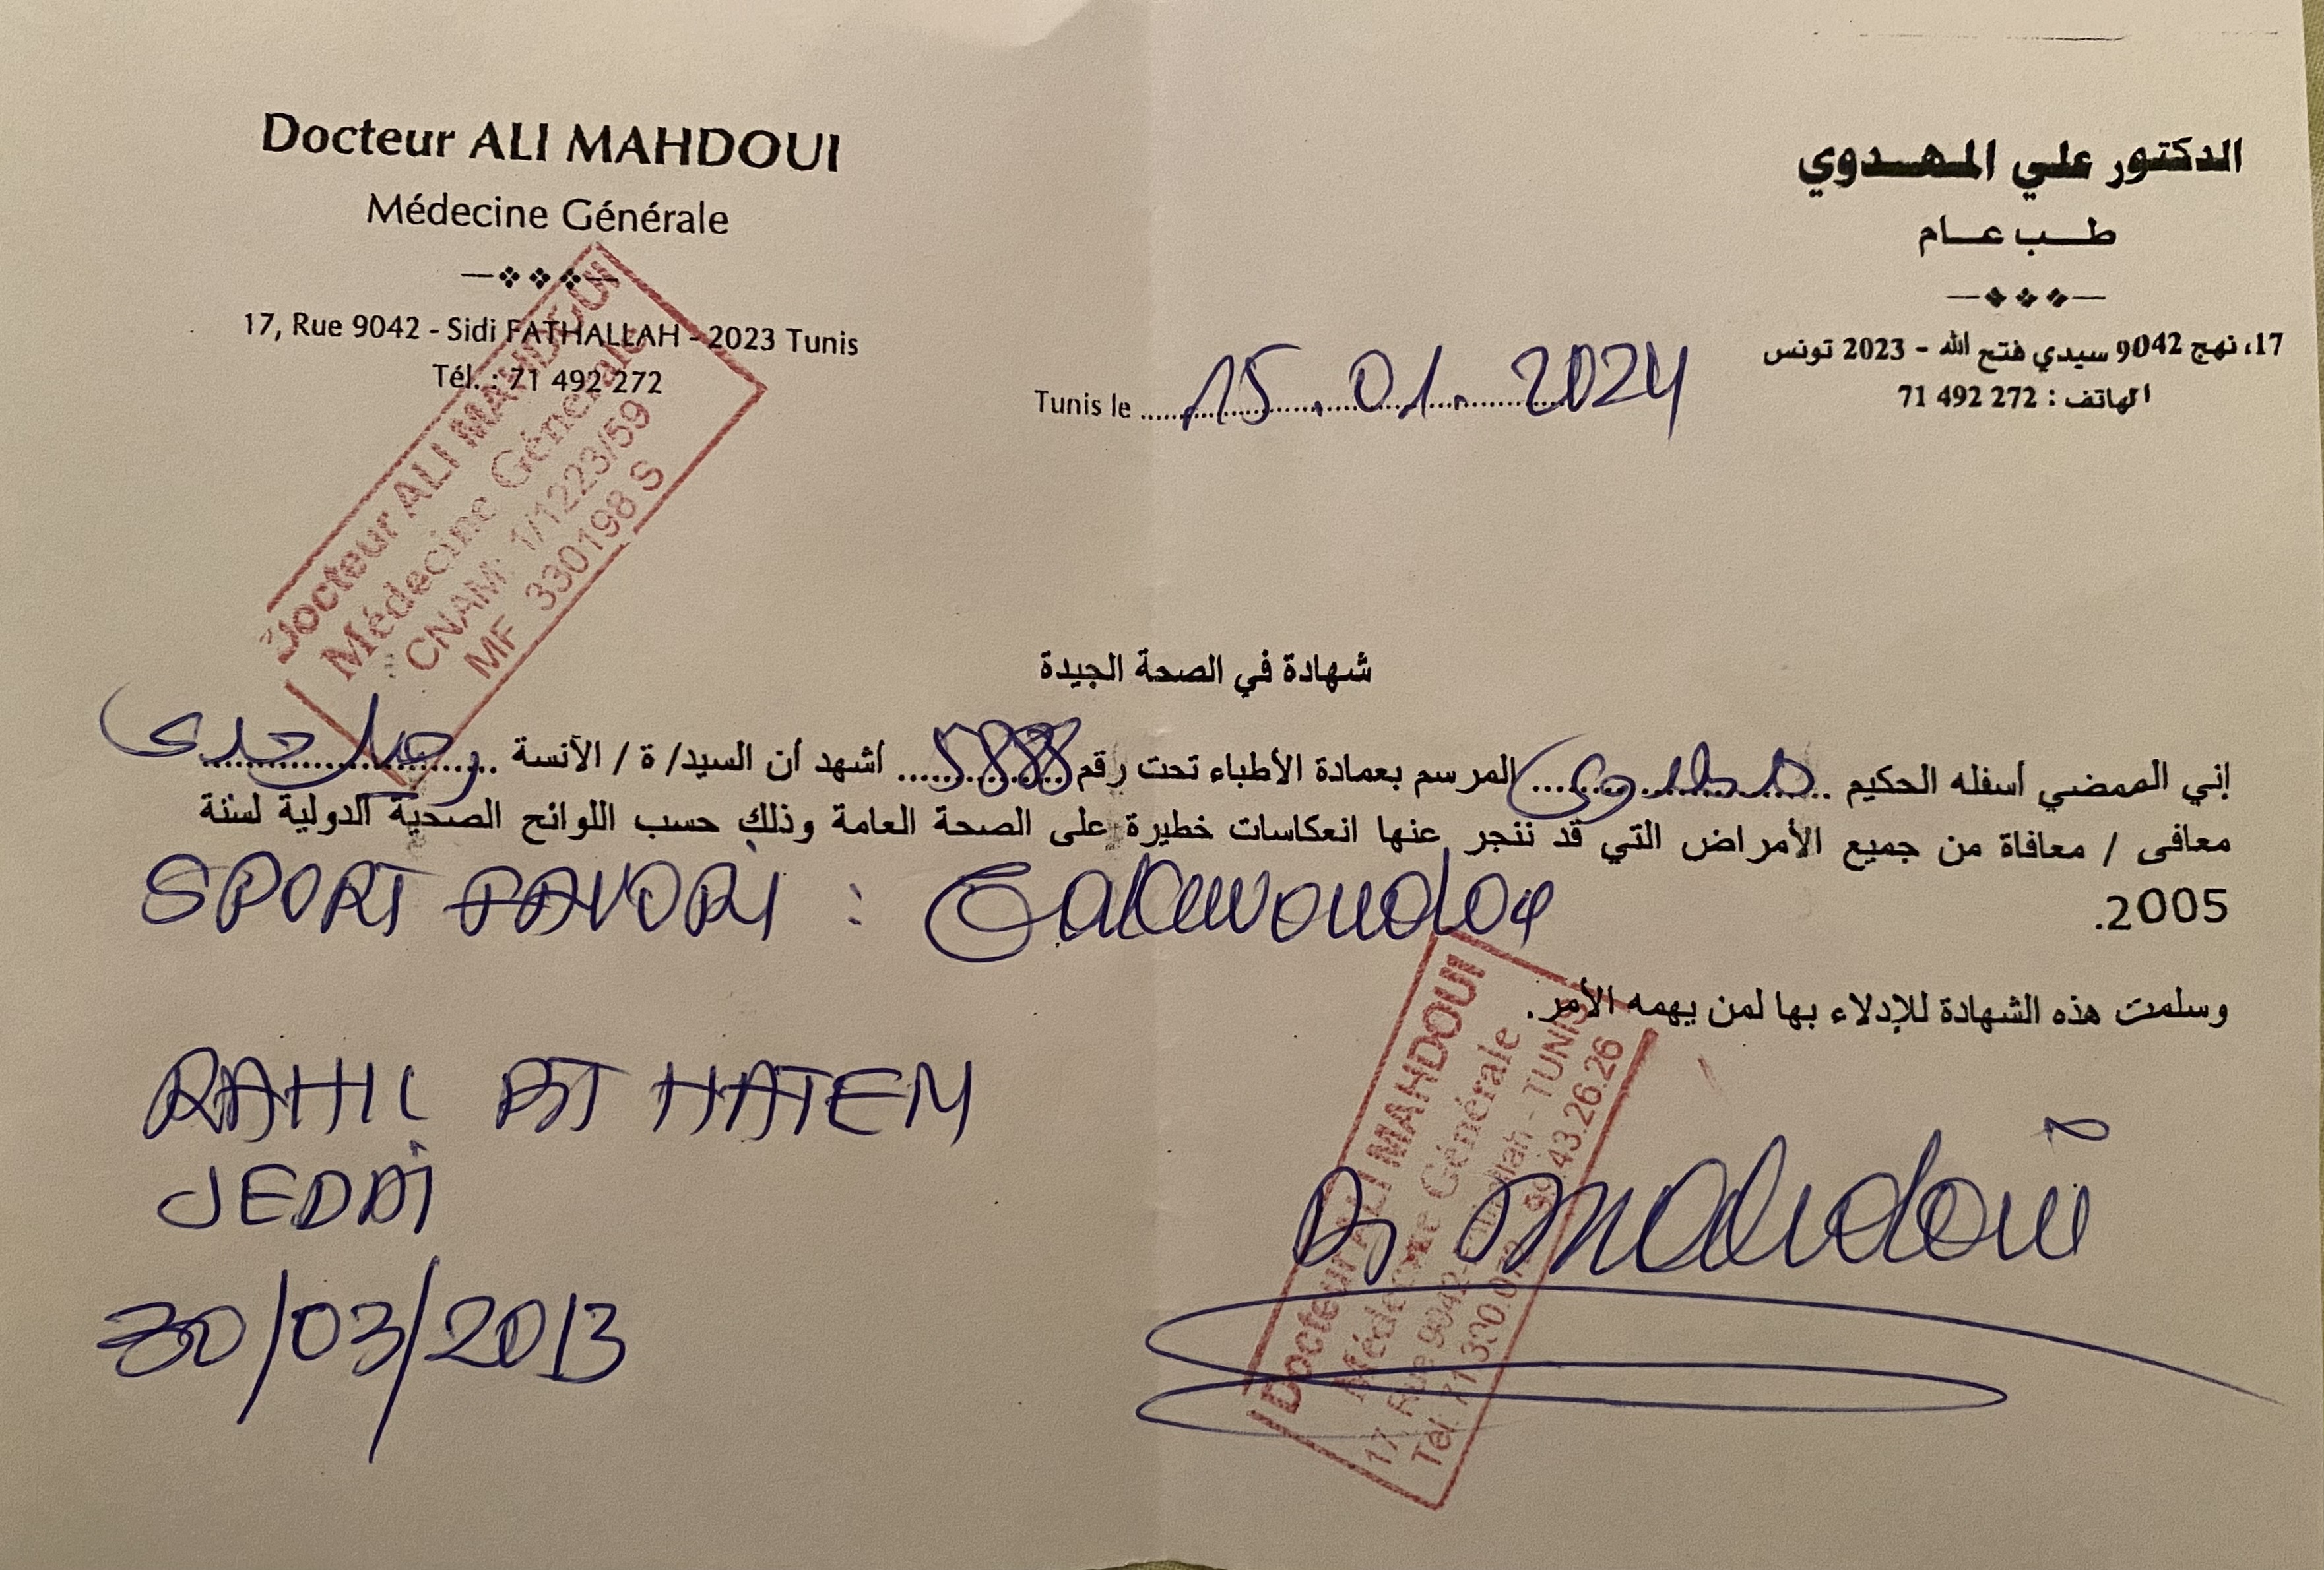 Docteur ALI MAHDOUI
Médecine Générale
17, Rue 9042 - Sidi FATHALLAH - 2023 Tunis
Tél. : 71 492 272
الدكتور علي المهدوي
طب عام
17، نهج 9042 سيدي فتح الله - 2023 تونس
الهاتف : 272 492 71
Tunis le 15.01.2024
Docteur ALI MAHDOUI
Médecine Générale
CNAM: 1/1223/59
MF 330198 S
شهادة في الصحة الجيدة
إني الممضي أسفله الحكيم مهدوي المرسم بعمادة الأطباء تحت رقم 5888 أشهد أن السيد/ ة / الآنسة رحيل جدي
معافى / معافاة من جميع الأمراض التي قد ننجر عنها انعكاسات خطيرة على الصحة العامة وذلك حسب اللوائح الصحية الدولية لسنة
2005.
SPORT FAVORI : Taekwondoe
وسلمت هذه الشهادة للإدلاء بها لمن يهمه الأمر.
RAHIL BT HATEM
JEDDI
30/03/2013
Dr Mahdoui
Docteur ALI MAHDOUI
Médecine Générale
17, Rue 9042 - Fathallah - TUNIS